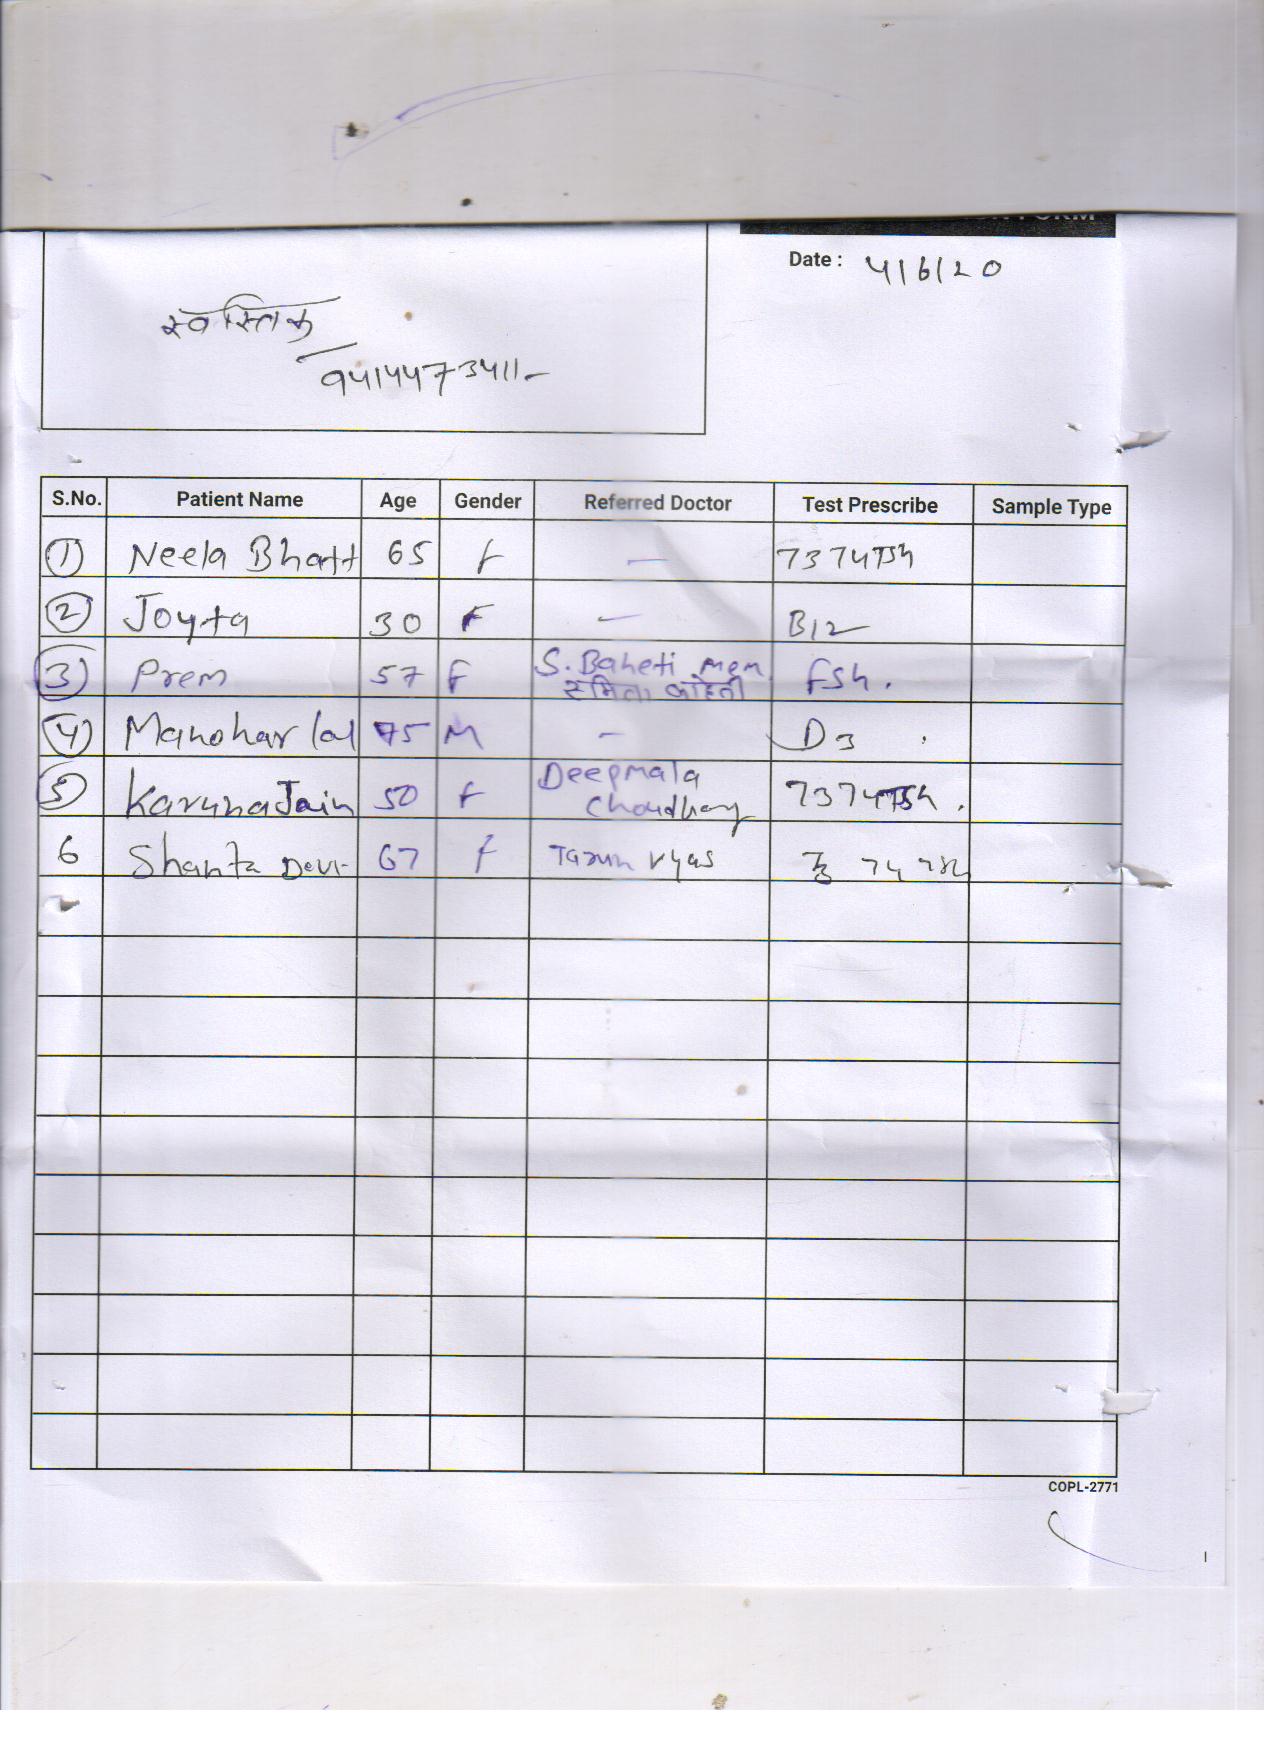 Date : 4/6/20
स्वस्तिक
9414473411-
S.No. Patient Name Age Gender Referred Doctor Test Prescribe Sample Type
1 Neela Bhatt 65 F - T3T4TSH
2 Joyta 30 F - B12
3 Prem 57 F S. Baheti mem FSh.
स्मिता बाहेती
4 Manohar lal 75 M - D3
5 Karuna Jain 50 F Deepmala T3T4TSH.
Choudhary
6 Shanta Devi- 67 F Tarun Vyas T3 T4 TSH
COPL-2771